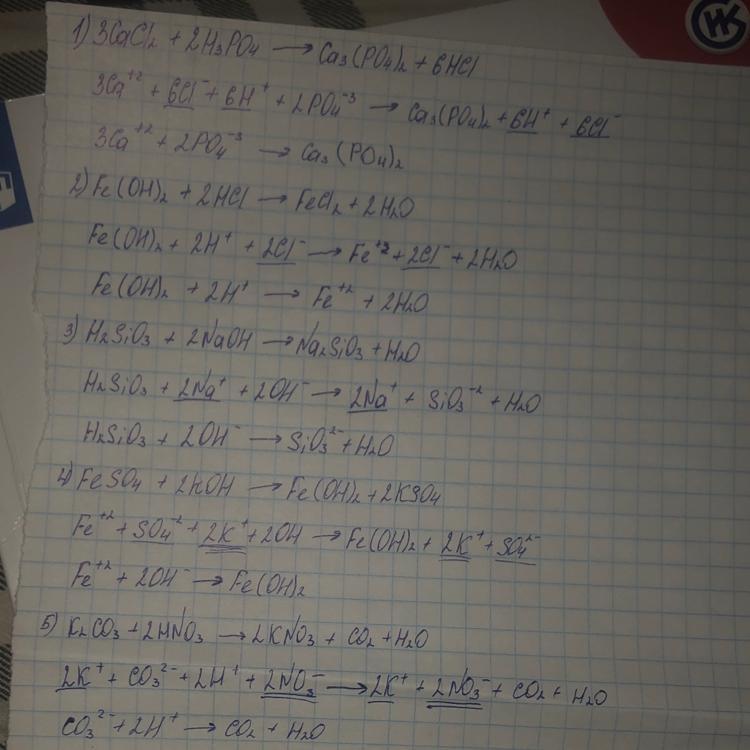 1) 3CaCl₂ + 2H₃PO₄ → Ca₃(PO₄)₂ + 6HCl
3Ca⁺² + 6Cl⁻ + 6H⁺ + 2PO₄⁻³ → Ca₃(PO₄)₂ + 6H⁺ + 6Cl⁻
3Ca⁺² + 2PO₄⁻³ → Ca₃(PO₄)₂
2) Fe(OH)₂ + 2HCl → FeCl₂ + 2H₂O
Fe(OH)₂ + 2H⁺ + 2Cl⁻ → Fe⁺² + 2Cl⁻ + 2H₂O
Fe(OH)₂ + 2H⁺ → Fe⁺² + 2H₂O
3) H₂SiO₃ + 2NaOH → Na₂SiO₃ + H₂O
H₂SiO₃ + 2Na⁺ + 2OH⁻ → 2Na⁺ + SiO₃⁻² + H₂O
H₂SiO₃ + 2OH⁻ → SiO₃²⁻ + H₂O
4) FeSO₄ + 2KOH → Fe(OH)₂ + 2KSO₄
Fe⁺² + SO₄⁻² + 2K⁺ + 2OH → Fe(OH)₂ + 2K⁺ + SO₄²⁻
Fe⁺² + 2OH⁻ → Fe(OH)₂
5) K₂CO₃ + 2HNO₃ → 2KNO₃ + CO₂ + H₂O
2K⁺ + CO₃²⁻ + 2H⁺ + 2NO₃⁻ → 2K⁺ + 2NO₃⁻ + CO₂ + H₂O
CO₃²⁻ + 2H⁺ → CO₂ + H₂O